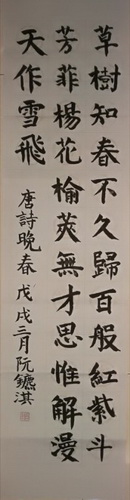 草樹知春不久歸百般紅紫斗
芳菲楊花榆莢無才思惟解漫
天作雪飛
唐詩晚春 戊戌三月阮鑣淇